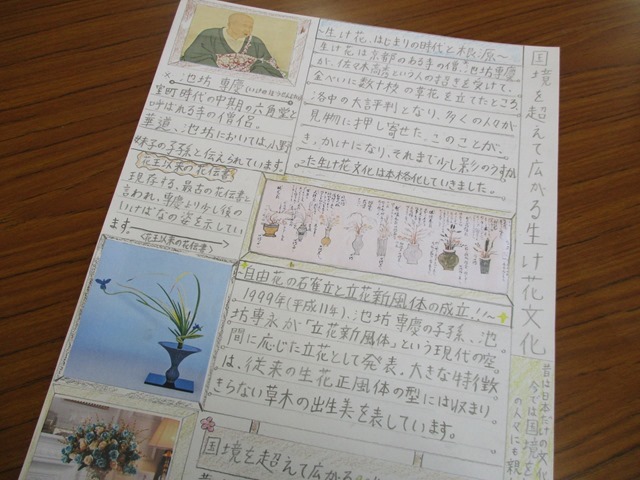 国境を超えて広がる生け花文化
昔は日本だけの文化
今では国境を
の人々にも親
~生け花、はじまりの時代と根源~
生け花は京都のお寺の僧、池坊専慶
が、佐々木高秀という人の招きを受けて、
金べいに数十枝の草花を立てたところ、
洛中の大評判となり、多くの人々が
見物に押し寄せた。このことが、
き、かけになり、それまで少し影のうすか
った生け花文化は本格化していきました。
池坊 専慶
室町時代の中期の六角堂と
呼ばれる寺の僧侶。
華道、池坊においては、小野
妹子の子孫と伝えられています。
花王以来の花伝書
現存する、最古の花伝書と
言われ、専慶より少し後の
いけばなの姿を示してい
ます。
<花王以来の花伝書>
自由花の確立と立花新風体の成立!!~
1999年(平成11年)、池坊専慶の子孫、池
坊専永が「立花新風体」という現代の空
間に応じた立花として発表。大きな特徴
は、従来の生花正風体の型には収まり
きらない草木の出生美を表しています。
国境を超えて広がる